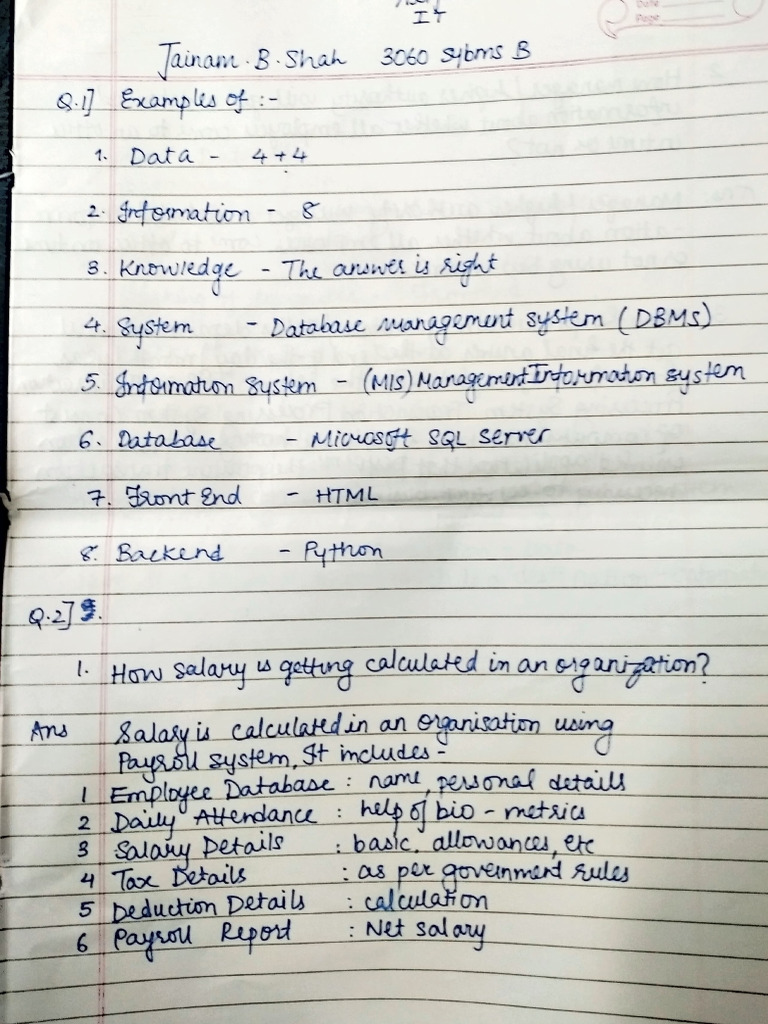 IT
Date
Page
Jainam. B. Shah 3060 Sybms B
Q.1] Examples of :-
1. Data - 4 + 4
2. Information - 8
3. Knowledge - The answer is right
4. System - Database management system (DBMS)
5. Information system - (MIS) Management Information system
6. Database - Microsoft SQL Server
7. Front End - HTML
8. Backend - Python
Q.2]
1. How salary is getting calculated in an organization?
Ans Salary is calculated in an organisation using
Payroll system, It includes -
1 Employee Database : name, personal details
2 Daily Attendance : help of bio - metrics
3 Salary Details : basic, allowances, etc
4 Tax Details : as per government rules
5 Deduction Details : calculation
6 Payroll Report : Net salary